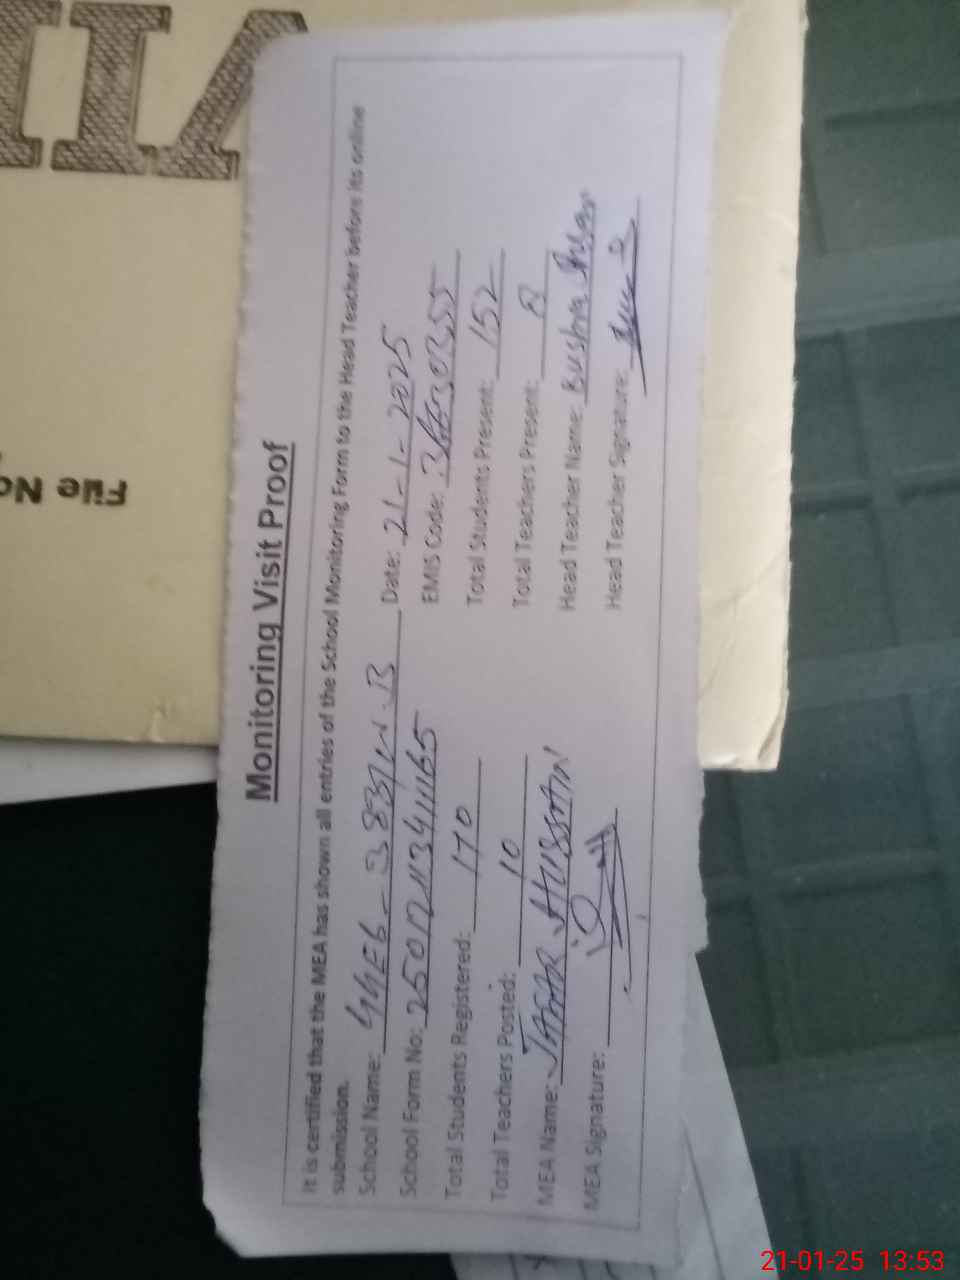 VII
File No
Monitoring Visit Proof
It is certified that the MEA has shown all entries of the School Monitoring Form to the Head Teacher before its online
submission.
School Name: Date: 21-1-2025
School Form No: EMIS Code:
Total Students Registered: 170 Total Students Present: 152
Total Teachers Posted: 10 Total Teachers Present:
MEA Name: JAFAR HUSSAIN Head Teacher Name: Bushra
MEA Signature: Head Teacher Signature:
21-01-25 13:53